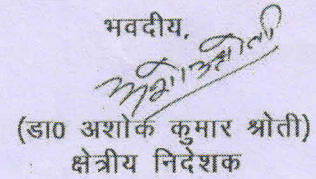 भवदीय,
(डा0 अशोक कुमार श्रोती)
क्षेत्रीय निदेशक